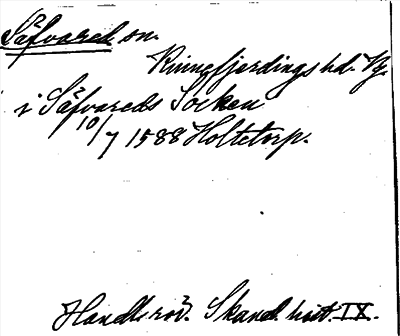 Säfvared sn.
Kinnefjerdings hd. Vg.
i Säfvareds Socken
10/7 1588 Holtetorp.
Handl. rör. Skand. hist. IX.